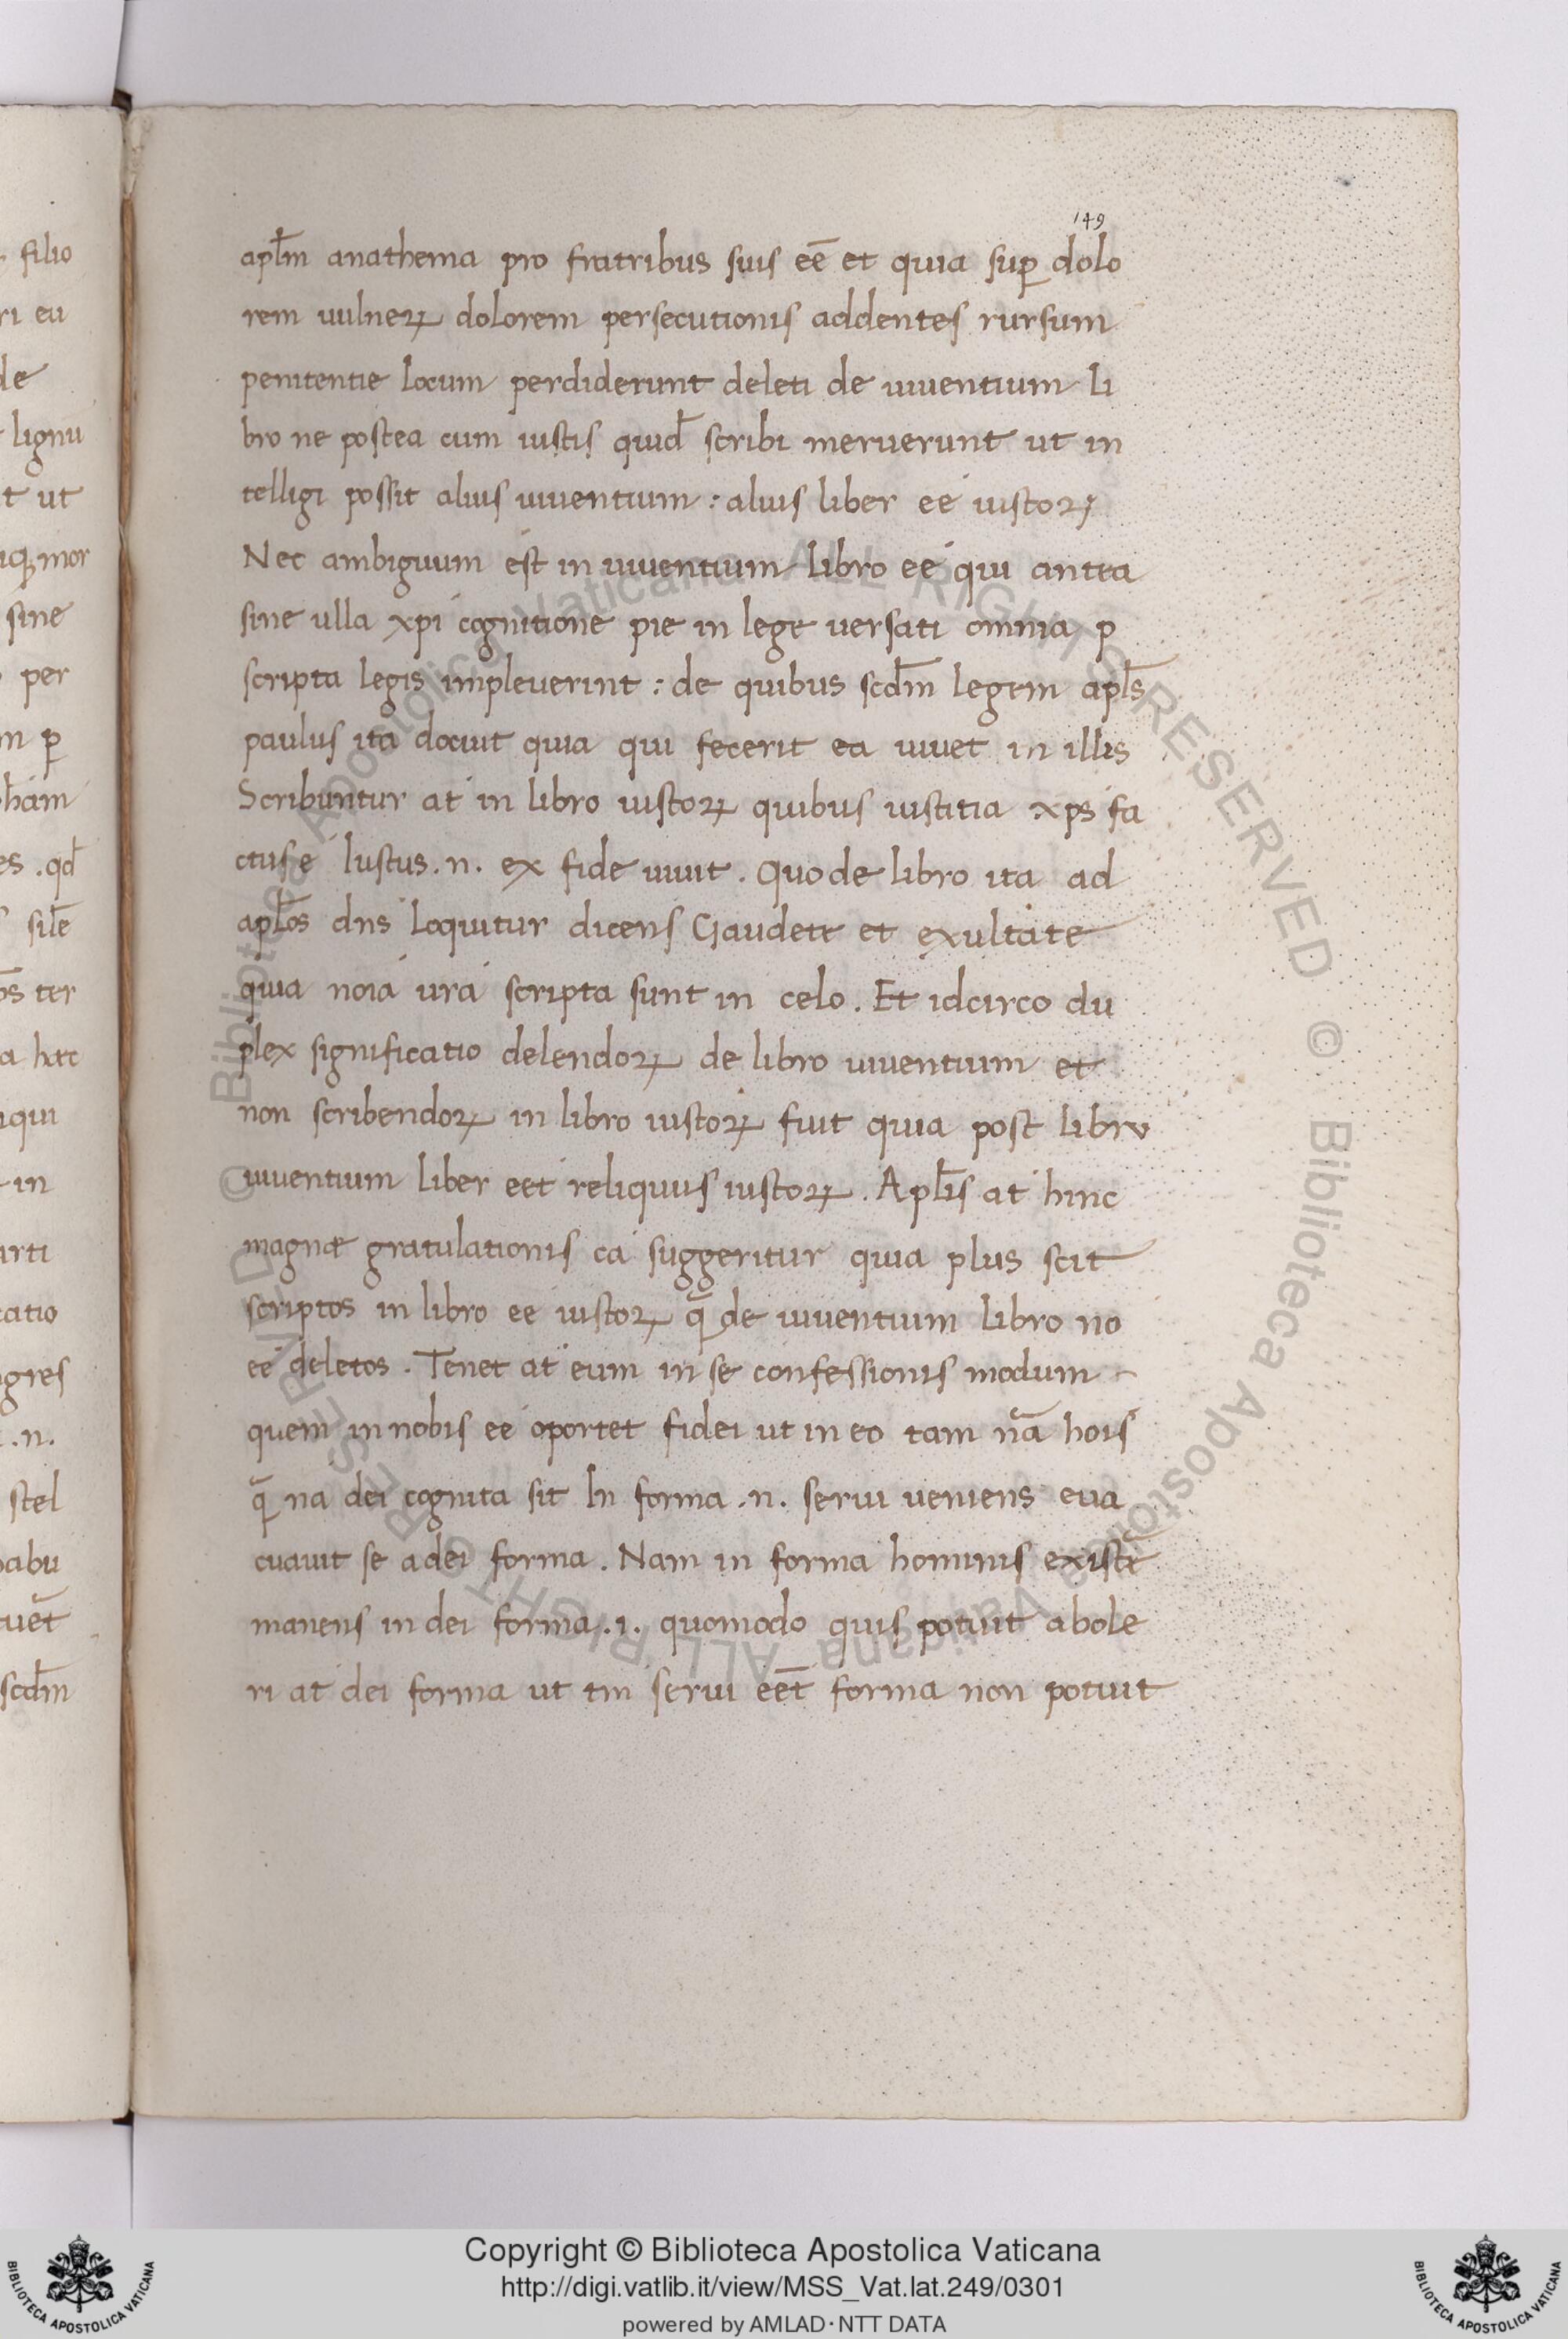 149
apl̄m anathema pro fratribus suis eē et quia suꝑ dolo
rem uulneꝝ dolorem persecutionis addentes rursum
penitentie locum perdiderunt deleti de uiuentium li
bro ne postea cum iustis quid̄ scribi meruerunt ut in
telligi possit alius uiuentium : alius liber eé iustoꝝ
Nec ambiguum est in uiuentium libro eé qui antea
sine ulla xpi cognitione pie in lege uersati omnia p
scripta legis impleuerint : de quibus scd̄m legem apl̄s
paulus ita docuit quia qui fecerit ea uiuet in illis
Scribuntur at in libro iustoꝝ quibus iustitia xps fa
ctus é Iustus .n. ex fide uiuit . Quo de libro ita ad
apl̄os dns loquitur dicens Gaudete et exultate
quia noiá urá scripta sunt in celo . Et idcirco du
plex significatio delendoꝝ de libro uiuentium et
non scribendoꝝ in libro iustoꝝ fuit quia post libru
uiuentium liber eet reliquus iustoꝝ . Apl̄is at hinc
magnæ gratulationis cá suggeritur quia plus scit
scriptos in libro ee iustoꝝ q̄ de uiuentium libro no
eé deletos . Tenet at eum in se confessionis modum
quem in nobis ee oportet fidei ut in eo tam nā hoís
q̄ na dei cognita sit In forma .n. serui ueniens eua
cuauit se a dei forma . Nam in forma hominis existē
manens in dei forma .i. quomodo quis potuit abole
ri at dei forma ut tm serui eēt forma non potuit
filio
ri eu
de
lignu
t ut
iqꝫ mor
sine
per
m ꝑ
ham
es . qd̄
sile
os ter
a hæc
iqui
in
arti
catio
gres
.n.
stel
babu
uēt
scd̄m
© Biblioteca Apostolica Vaticana ALL RIGHTS RESERVED © Biblioteca Apostolica Vaticana ALL RIGHTS RESERVED
Copyright © Biblioteca Apostolica Vaticana
http://digi.vatlib.it/view/MSS_Vat.lat.249/0301
powered by AMLAD·NTT DATA
BIBLIOTECA APOSTOLICA VATICANA
BIBLIOTECA APOSTOLICA VATICANA